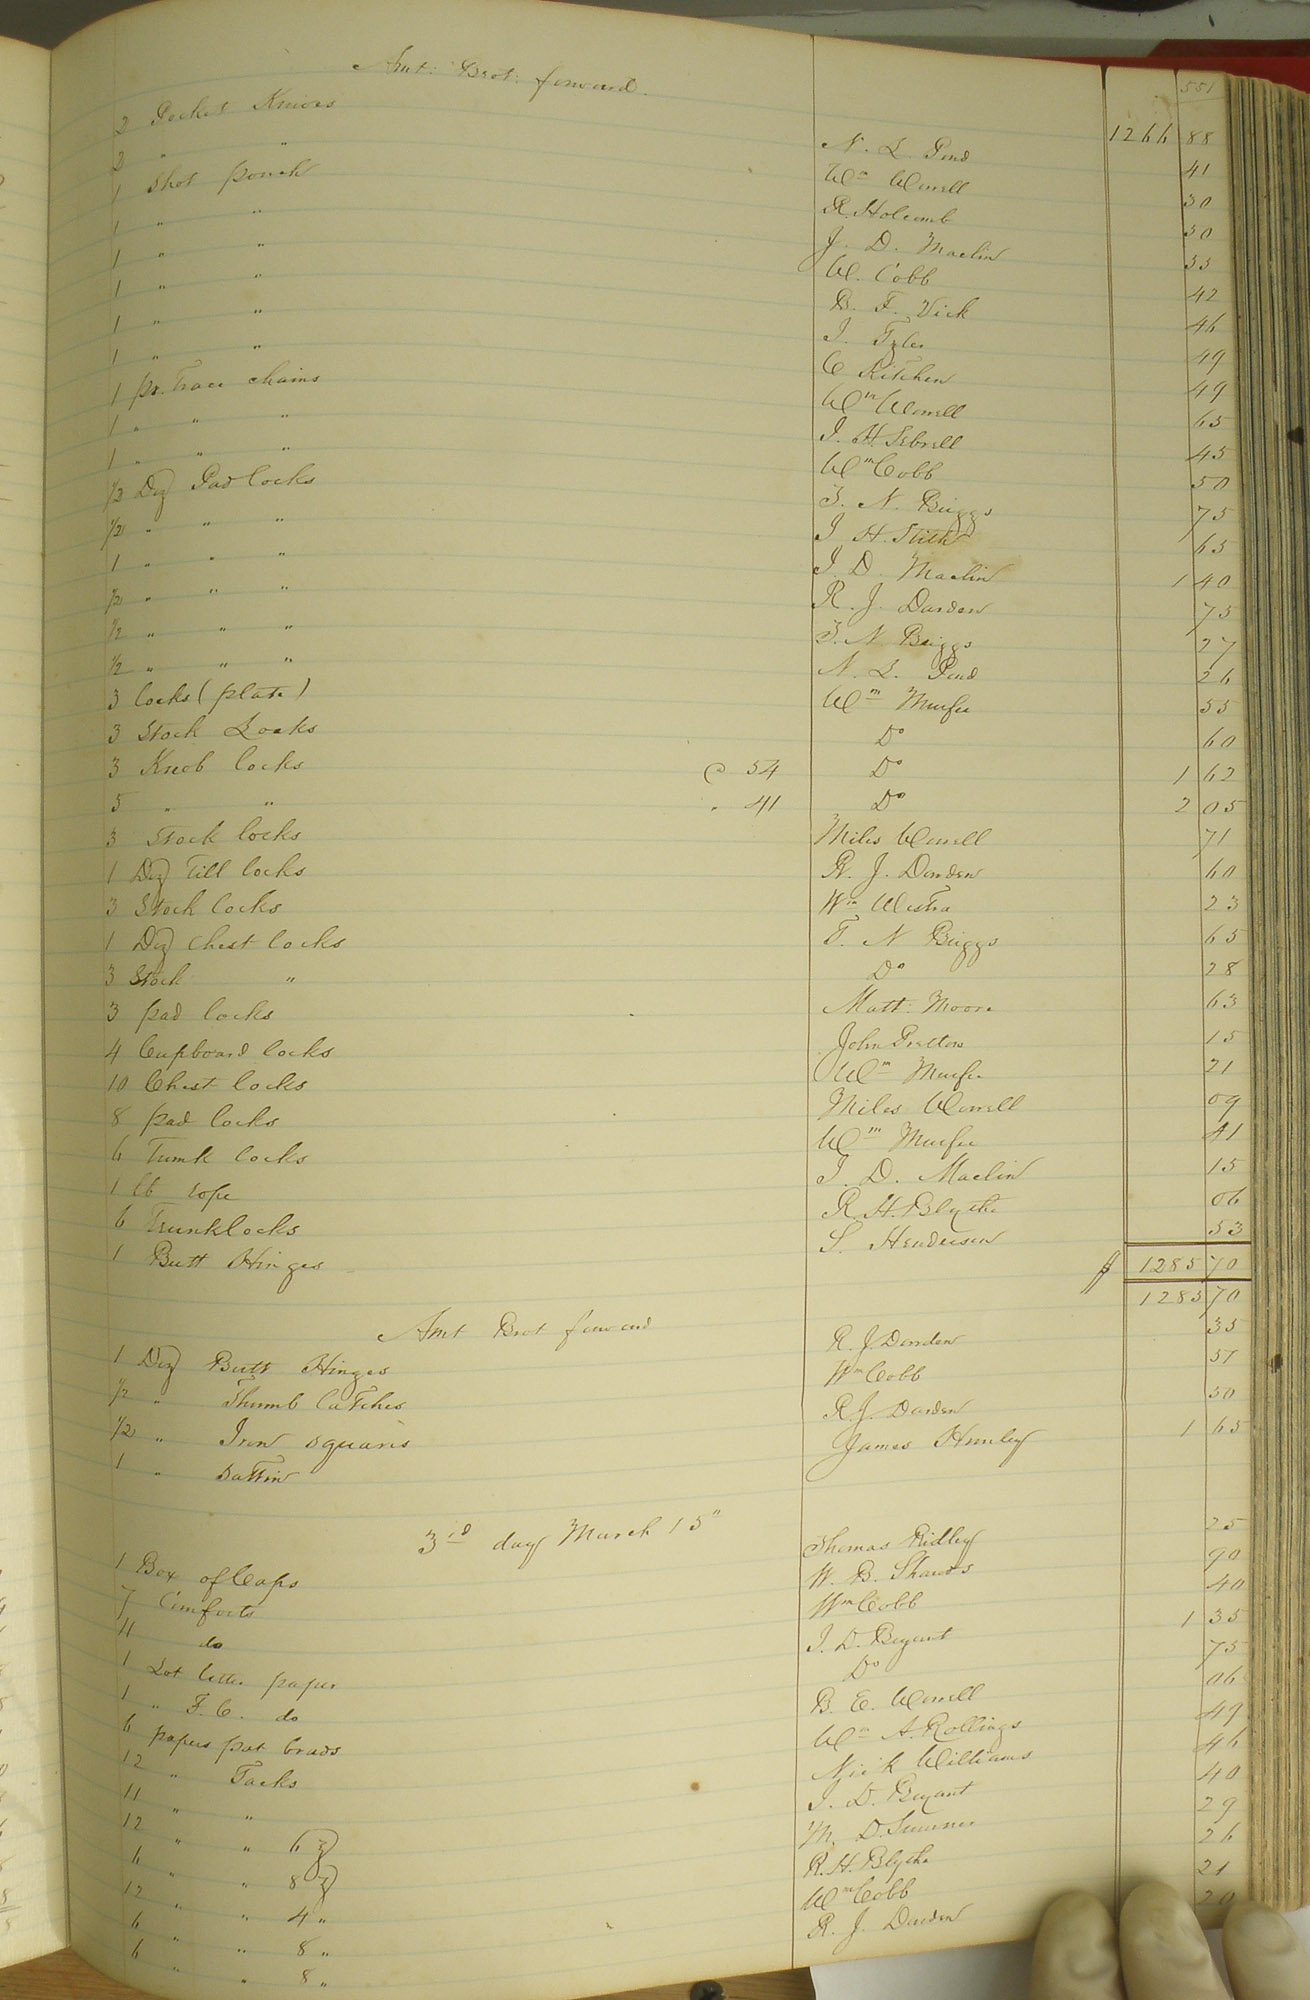 551
Amt. Brot. forward. 1266 88
2 Pocket Knives N. L. Pond 41
2 " " Wm Worrell 30
1 Shot pouch R. Holcomb 50
1 " " J. D. Maclin 55
1 " " W. Cobb 42
1 " " B. F. Vick 46
1 " " J. Tyler 49
1 " " C Kitchen 49
1 pr. Trace chains Wm Worrell 65
1 " " " J. H. Sebrell 45
1 " " " Wm Cobb 50
1/2 Doz Pad locks T. N. Briggs 75
1/2 " " " J H. Stith 65
1 " " " J. D. Maclin 1 40
1/2 " " " R. J. Darden 75
1/2 " " " T. N. Briggs 27
1/2 " " " N. L. Pond 26
3 locks (plate) Wm Murfee 55
3 Stock Locks Do 60
3 Knob locks @ 54 Do 1 62
5 " " " 41 Do 2 05
3 Stock locks Miles Worrell 71
1 Doz Till locks R. J. Darden 60
3 Stock locks Wm Westra 23
1 Doz Chest locks T. N Briggs 65
3 Stock " Do 28
3 pad locks Matt. Moore 63
4 Cupboard locks John Pretlow 15
10 Chest locks Wm Murfee 21
8 pad locks Miles Worrell 09
6 Trunk locks Wm Murfee 41
1 lb rope J. D. Maclin 15
6 Trunklocks R. H. Blythe 06
1 Butt Hinges S. Henderson 53
$ 1285 70
Amt Brot forward 1285 70
1 Doz Butt Hinges R. J. Darden 35
1/2 " Thumb Catches Wm Cobb 57
1/2 " Iron Squares R. J. Darden 50
1 " Sattin James Hunley 1 65
3rd day March 15"
1 Box of Caps Thomas Ridley 25
7 Comforts W. B. Shands 90
11 do Wm Cobb 40
1 Lot letter paper J. D. Bryant 1 35
1 " F. C. do Do 75
6 papers pat brads B. E. Worrell 06
12 " Tacks Wm A. Rollings 49
11 " " Nick Williams 46
12 " " 6 oz J. D. Bryant 40
6 " " 8 oz M. D. Sumner 29
12 " " 4 " R. H. Blythe 26
6 " " 8 " Wm Cobb 21
6 " " 8 " R. J. Darden 20